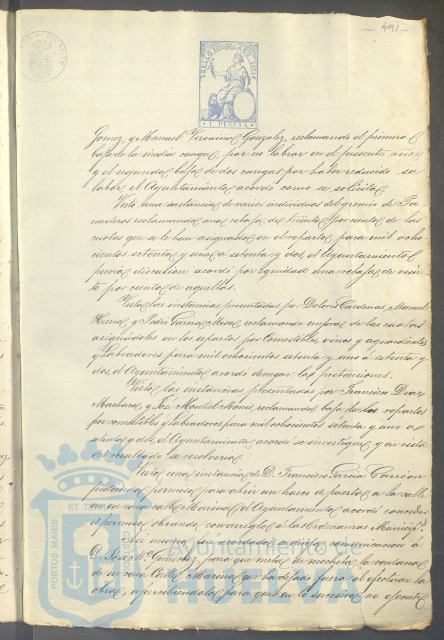 491
SELLO
AÑO 1871
1 PESETA
Gomez, y Manuel Vizcaino Gonzalez, reclamando el primero
baja de la media canga por no labrar en el presente año,
y el segundo baja de dos cangas por haber reducido su
labor, el Ayuntamiento acordó como se solicita.
Vista una instancia de varios individuos del gremio de Pa-
naderos reclamando una rebaja del treinta por ciento de las
cuotas que se le han asignado en el reparto para mil ocho-
cientos setenta y uno a setenta y dos, el Ayuntamiento
previa discusion acordó por equidad una rebaja de vein-
te por ciento de aquellas.
Vistas las instancias presentadas por Dolores Cardenas, Manuel
y Pedro Garcia reclamando de las cuotas
asignadoles en los repartos por Comestibles, vinos y aguardientes
y Labradores para mil ochocientos setenta y uno a setenta y
dos, el Ayuntamiento acordó denegar las pretensiones.
Vistas las instancias presentadas por Francisco Diaz
y José Montiel reclamando baja de los repartos
por comestibles y labradores para mil ochocientos setenta y uno a
setenta y dos, el Ayuntamiento acordó se investigue, y en vista
del resultado se resolverá.
Vista una instancia de D. Francisco Garcia Carrion
pidiendo permiso para abrir un hueco de puerta a la calle
en su casa calle Marina, el Ayuntamiento acordó concederle
el permiso obrando con arreglo a las Ordenanzas Municip.s
Asi mismo se acordó se dirija comunicacion á
D. José M.ª Gutierrez para que meta de mocheta la ventana
de su casa Calle Marina que ha dejado fuera al efectuar la
obra, apercibiendole para que en lo sucesivo no ejecute
PORTUS MARIS ET TERRAE
Ayuntamiento de
HUELVA